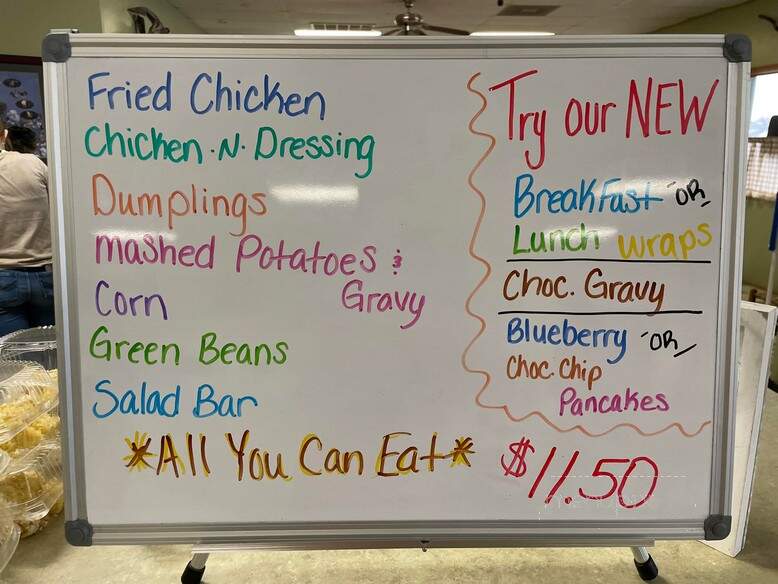 Fried Chicken
Chicken·N·Dressing
Dumplings
mashed Potatoes &
Gravy
Corn
Green Beans
Salad Bar
*All You Can Eat*
Try our NEW
Breakfast "OR"
Lunch wraps
Choc. Gravy
Blueberry "OR"
Choc. Chip
Pancakes
$11.50